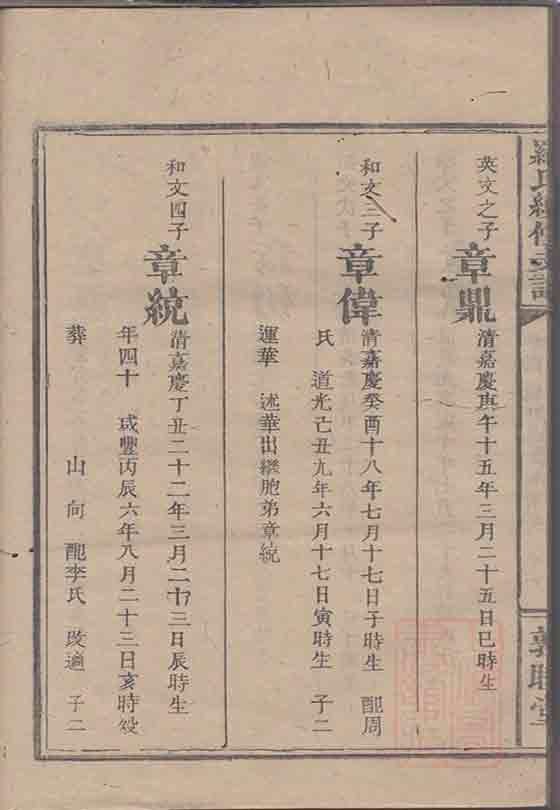 羅氏續修支譜
敦睦堂
英文之子
章鼎
清嘉慶庚午十五年三月二十五日巳時生
和文三子
章偉
清嘉慶癸酉十八年七月十七日子時生 配周
氏 道光己丑九年六月十七日寅時生 子二
運華 述華出繼胞弟章統
和文四子
章統
清嘉慶丁丑二十二年三月二十三日辰時生
年四十 咸豐丙辰六年八月二十三日亥時歿
葬 山 向 配李氏 改適 子二